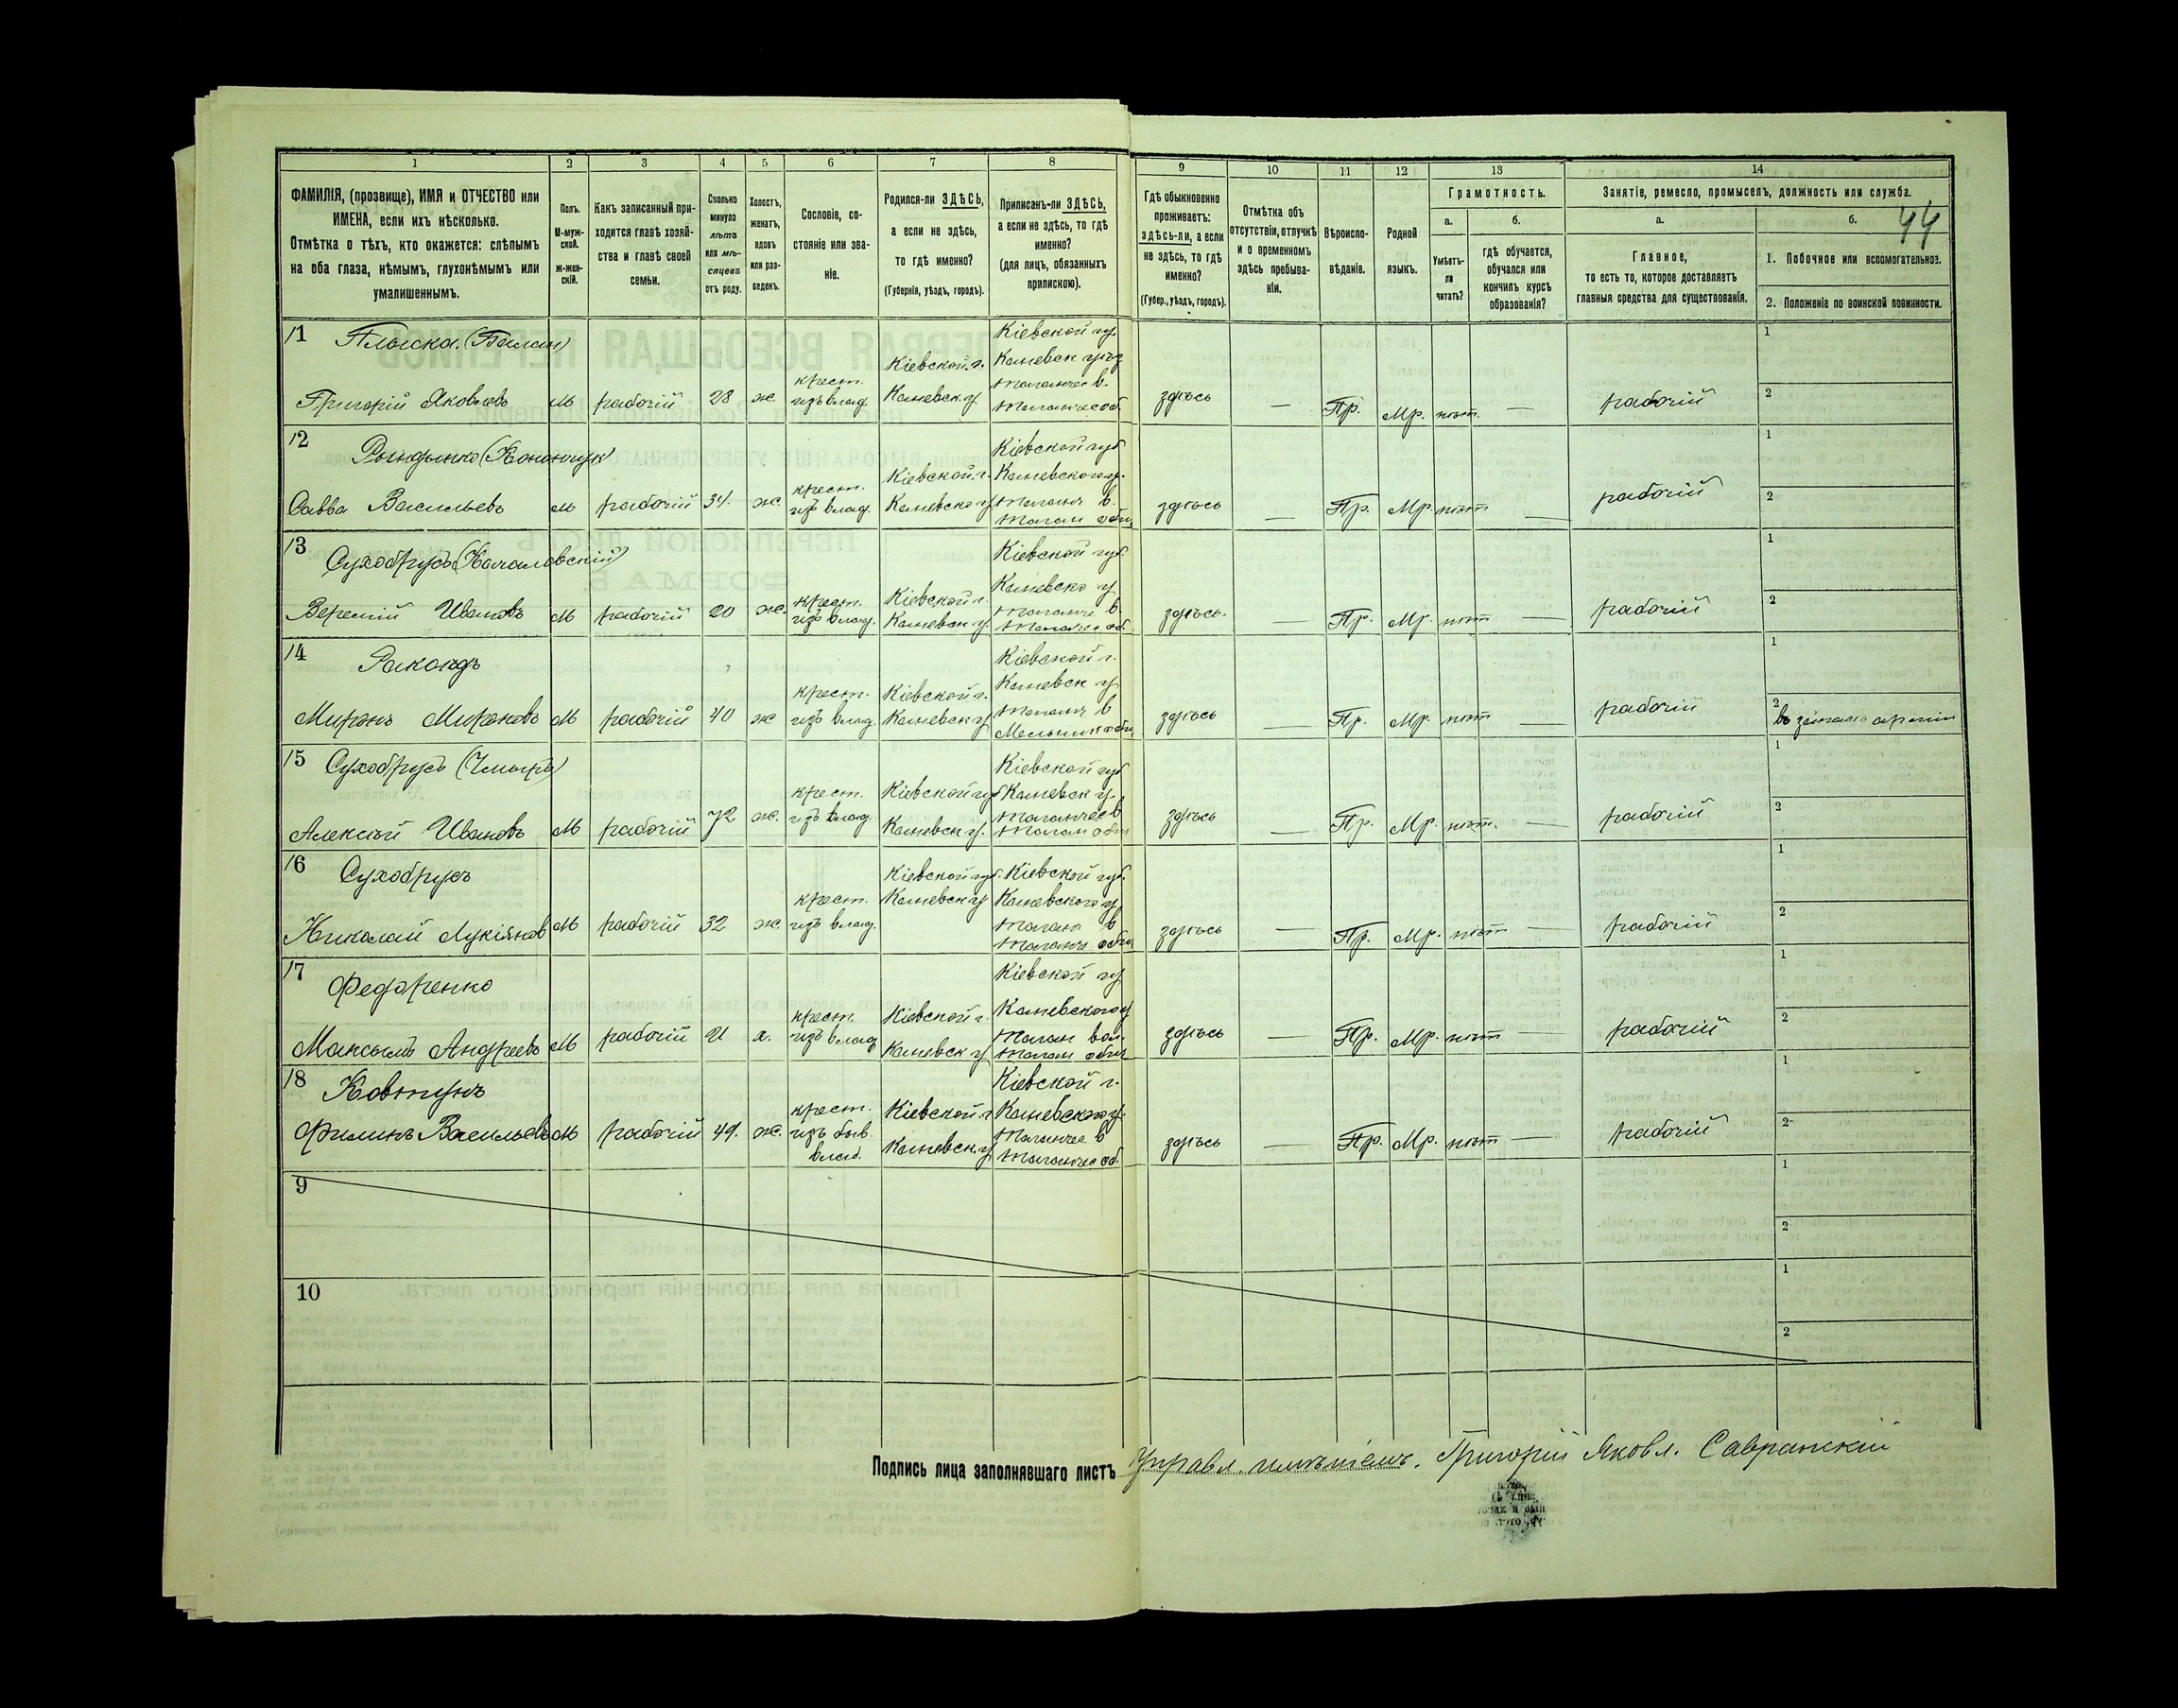 44
1 2 3 4 5 6 7 8 9 10 11 12 13 14
ФАМИЛІЯ, (прозвище), ИМЯ и ОТЧЕСТВО или
ИМЕНА, если ихъ нѣсколько.
Отмѣтка о тѣхъ, кто окажется: слѣпымъ
на оба глаза, нѣмымъ, глухонѣмымъ или
умалишеннымъ.
Полъ.
М-муж-
ской.
Ж-жен-
скій.
Какъ записанный при-
ходится главѣ хозяй-
ства и главѣ своей
семьи.
Сколько
минуло
лѣтъ
или мѣ-
сяцевъ
отъ роду.
Холостъ,
женатъ,
вдовъ
или раз-
веденъ.
Сословіе, со-
стояніе или зва-
ніе.
Родился-ли ЗДѢСЬ,
а если не здѣсь,
то гдѣ именно?
(Губернія, уѣздъ, городъ).
Приписанъ-ли ЗДѢСЬ,
а если не здѣсь, то гдѣ
именно?
(для лицъ, обязанныхъ
припискою).
Гдѣ обыкновенно
проживаетъ:
здѣсь-ли, а если
не здѣсь, то гдѣ
именно?
(Губер., уѣздъ, городъ).
Отмѣтка объ
отсутствіи, отлучкѣ
и о временномъ
здѣсь пребыва-
ніи.
Вѣроиспо-
вѣданіе.
Родной
языкъ.
Грамотность.
а. б.
Умѣетъ-
ли
читать?
гдѣ обучается,
обучался или
кончилъ курсъ
образованія?
Занятіе, ремесло, промыселъ, должность или служба.
а. б.
Главное,
то есть то, которое доставляетъ
главныя средства для существованія.
1. Побочное или вспомогательное.
2. Положеніе по воинской повинности.
1
Григорій Яковлевъ
м рабочій 28 ж
крест.
изъ влад.
Кіевской г.
Каневск у
Кіевской гу.
здѣсь — Пр. Мр. нѣт. — рабочій
1
2
2
Савва Васильевъ
м рабочій 34. ж
крест.
из влад.
Кіевской г.
Каневско у
Кіевской губ
Каневского у.
здѣсь — Пр. Мр. нѣт — рабочій
1
2
3
Сухобрусъ
Иванов
м рабочій 20 ж.
крест.
изъ влад.
Кіевской г.
Каневск у.
Кіевской губ.
Каневско у
здѣсь. — Пр. Мр. нѣт — рабочій
1
2
4
Миронъ Мироновъ
м рабочій 40 ж
крест.
изъ влад.
Кіевской г.
Каневск у
Кіевской г.
Каневск у
здѣсь — Пр. Мр. нѣт — рабочій
1
2
5
Сухобрусъ (Чмырь)
Алексѣй Ивановъ
м рабочій ж.
крест.
изъ влад.
Кіевской губ
Каневск у.
Кіевской губ
Каневск у.
здѣсь — Пр. Мр. нѣт. — рабочій
1
2
6
Сухобрусъ
Николай Лукіянов
м рабочій 32 ж.
крест.
изъ влад.
Кіевской губ.
Каневск у
Кіевской губ.
Каневского у
здѣсь — Пр. Мр. нѣт — рабочій
1
2
7
Федоренко
Максымъ Андреевъ
м рабочій 21 х.
крест.
изъ влад
Кіевской г.
Каневск у
Кіевской гу
Каневского у
здѣсь — Пр. Мр. нѣт — рабочій
1
2
8
Ковтунъ
Филипъ Васильевъ
м рабочій 49. ж.
крест.
изъ быв.
влад.
Кіевской г
Каневск. у
Кіевской г.
Каневского у.
здѣсь — Пр. Мр. нѣт — рабочій
1
2
9
1
2
10
1
2
Подпись лица заполнявшаго листъ Управл. имѣніемъ. Григорій Яковл. Савранскій